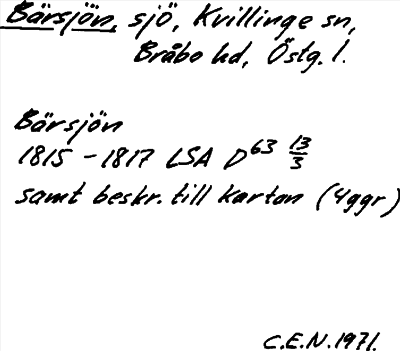 Bärsjön, sjö, Kvillinge sn,
Bråbo hd, Östg. l.
Bärsjön
1815 - 1817 LSA D 63 13/3
samt beskr. till kartan (4ggr)
C.E.N. 1971.